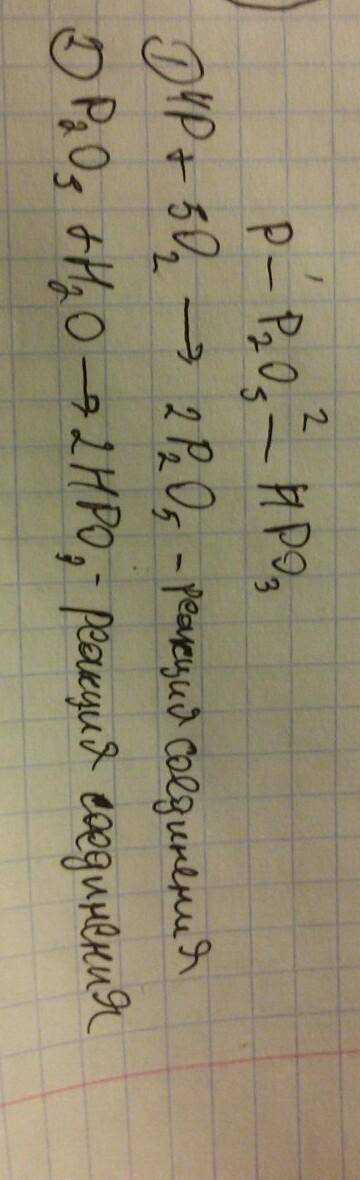 P —¹ P₂O₅ —² HPO₃
① 4P + 5O₂ → 2P₂O₅ - реакция соединения
② P₂O₅ + H₂O → 2HPO₃ - реакция соединения